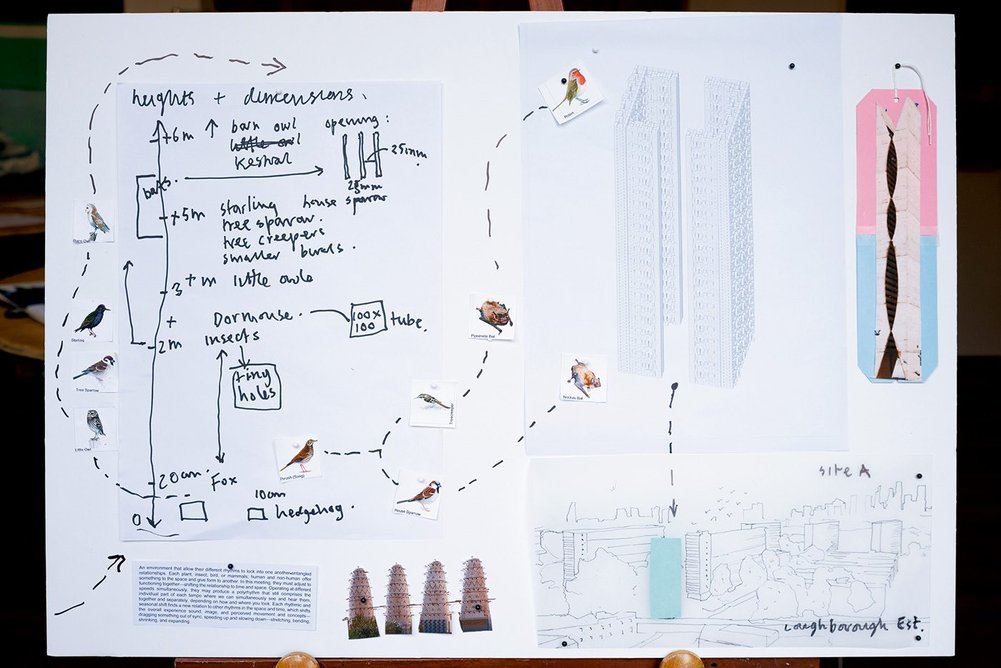 heights + dimensions.
+6m
barn owl
kestral
opening:
25mm
28mm
house
sparrow
bats.
+5m
starling
tree sparrow.
tree creepers
smaller birds.
3+m little owls
+
2m
Dormouse.
100x
100
tube.
insects
tiny
holes
20cm.
Fox
10cm
hedgehog.
0
Barn Owl
Starling
Tree Sparrow
Little Owl
Thrush (Song)
House Sparrow
Treecreeper
Pipistrelle Bat
Noctule Bat
Robin
site A
Loughborough Est.
An environment that allow their different rhythms to lock into one anotherentangled
relationships. Each plant, insect, bird, or mammals; human and non-human offer
something to the space and give form to another. In this meeting, they must adjust to
functioning together—shifting the relationship to time and space. Operating at different
speeds simultaneously, they may produce a polyrhythm that still comprises the
individual part of each tempo where we can simultaneously see and hear them,
together and separately, depending on how and where you look. Each rhythmic and
seasonal shift finds a new relation to other rhythms in the space and time, which shifts
the overall experience sound, image, and perceived movement and concepts—
dragging something out of sync, speeding up and slowing down—stretching, bending,
shrinking, and expanding.